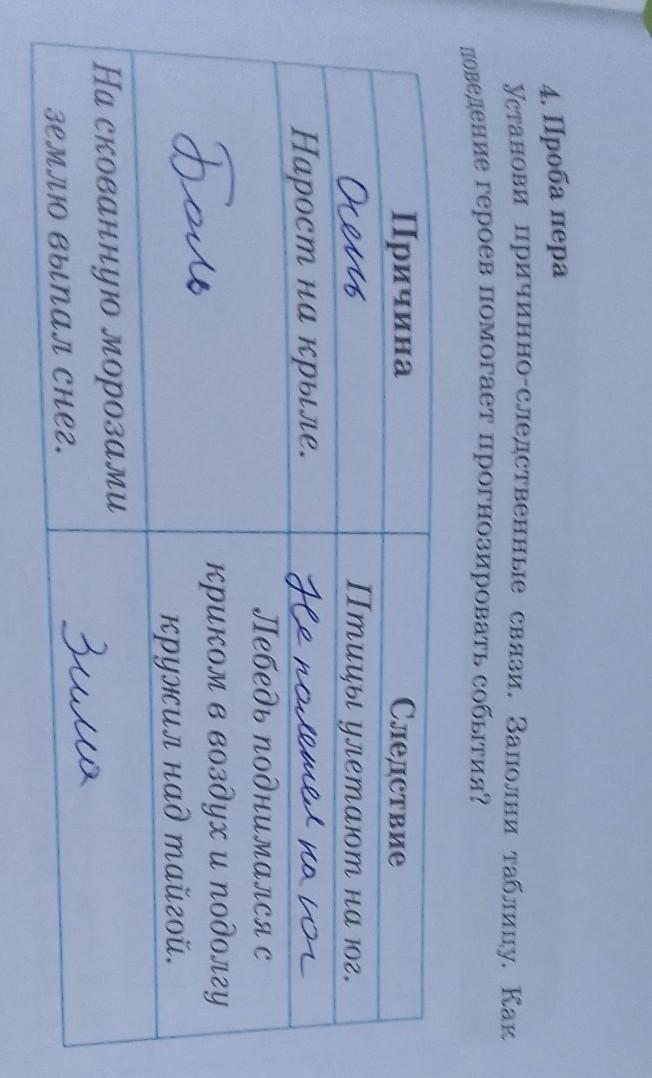 4. Проба пера
Установи причинно-следственные связи. Заполни таблицу. Как
поведение героев помогает прогнозировать события?
Причина
Следствие
Осень
Птицы улетают на юг.
Нарост на крыле.
Не полетел на юг
Боль
Лебедь поднимался с
криком в воздух и подолгу
кружил над тайгой.
На скованную морозами
землю выпал снег.
Зима